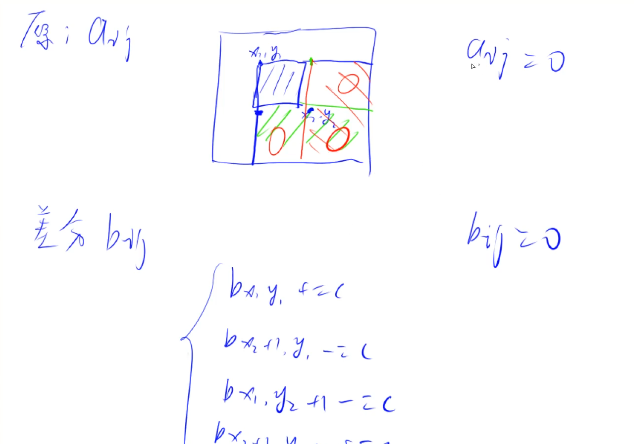 原: aij
aij = 0
x1, y1
0
x2, y2
0 0
差分 bij
bij = 0
bx1, y1 += c
bx2+1, y1 -= c
bx1, y2+1 -= c